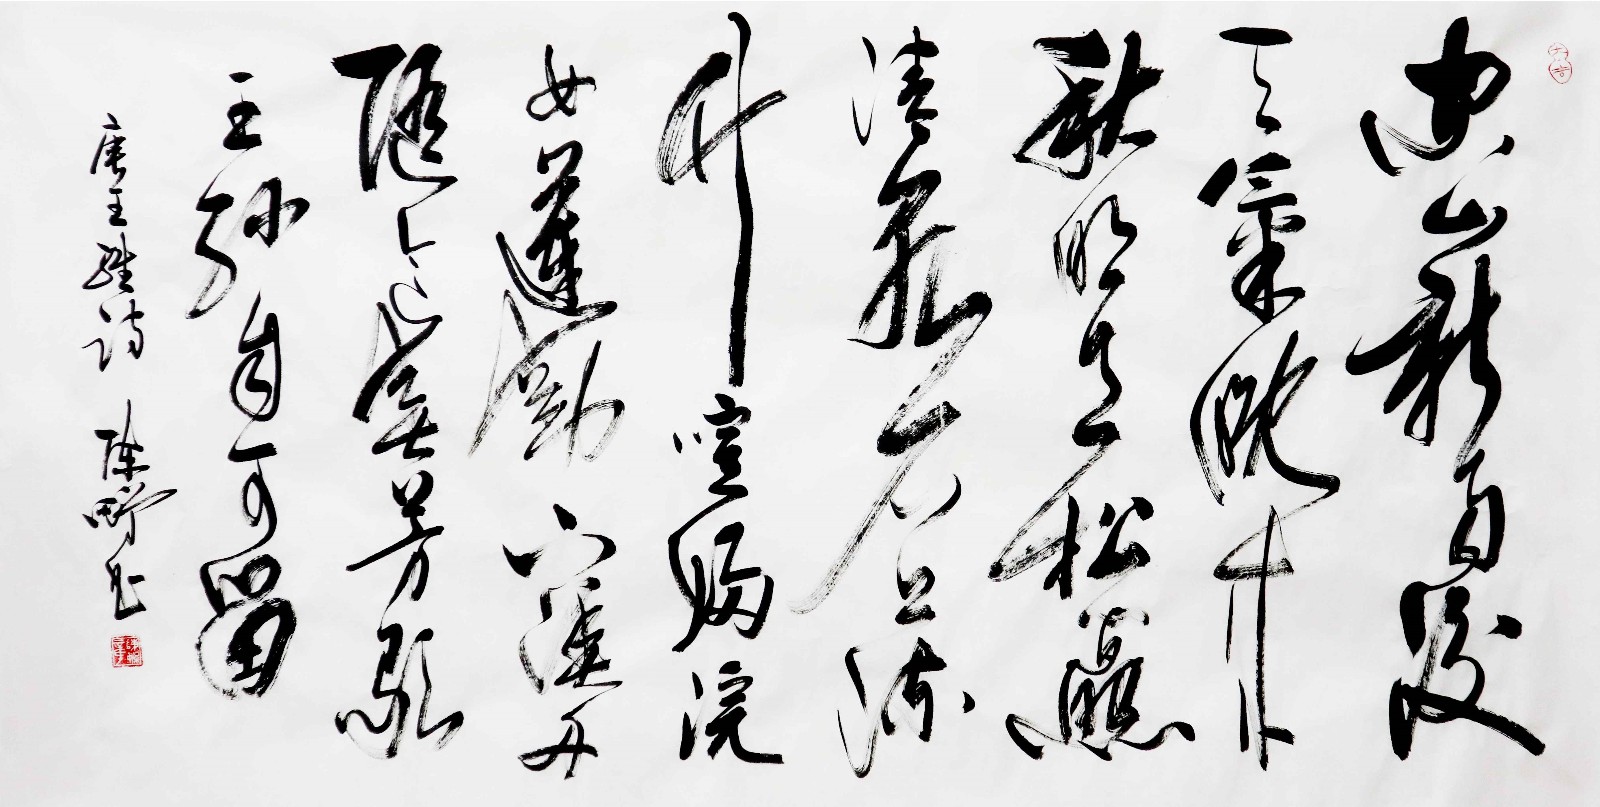 大吉
空山新雨後
天氣晚来
秋明月松間照
清泉石上流
竹喧歸浣
女蓮動下漁舟
隨意春芳歇
王孫自可留
唐王維詩 陳野书